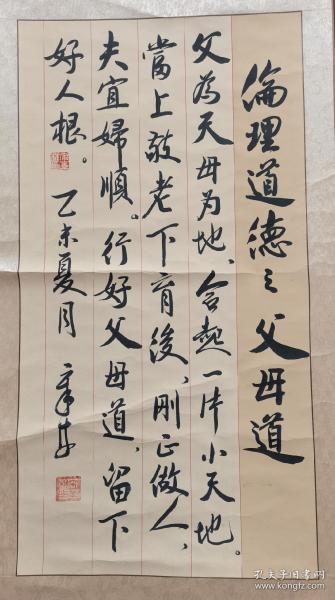 倫理道德之父母道
父為天母为地、合起一片小天地。
當上敬老下育後，剛正做人、
夫宜婦順。行好父母道，留下
好人根。
乙未夏月
孔夫子旧书网
www.kongfz.com